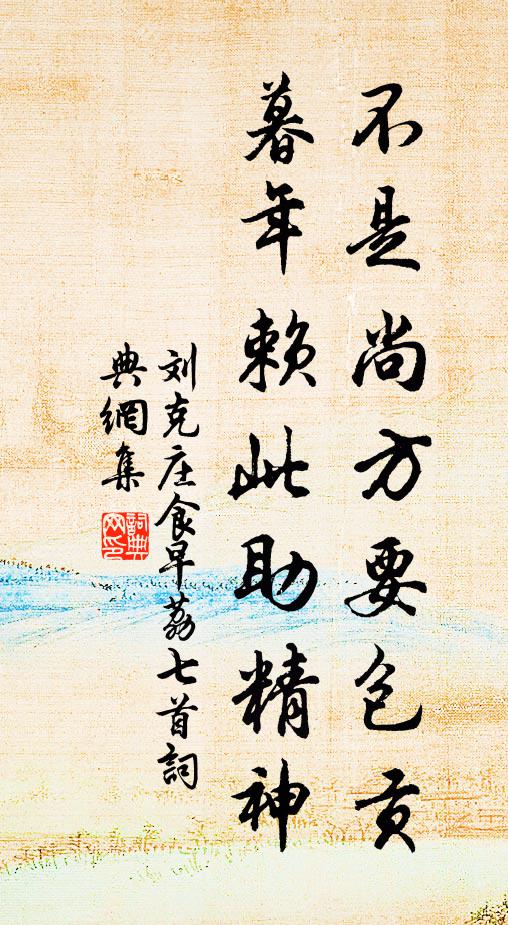 不是尚方要包贡
暮年赖此助精神
刘克庄食早荔七首詞
典網集
詞典
网印